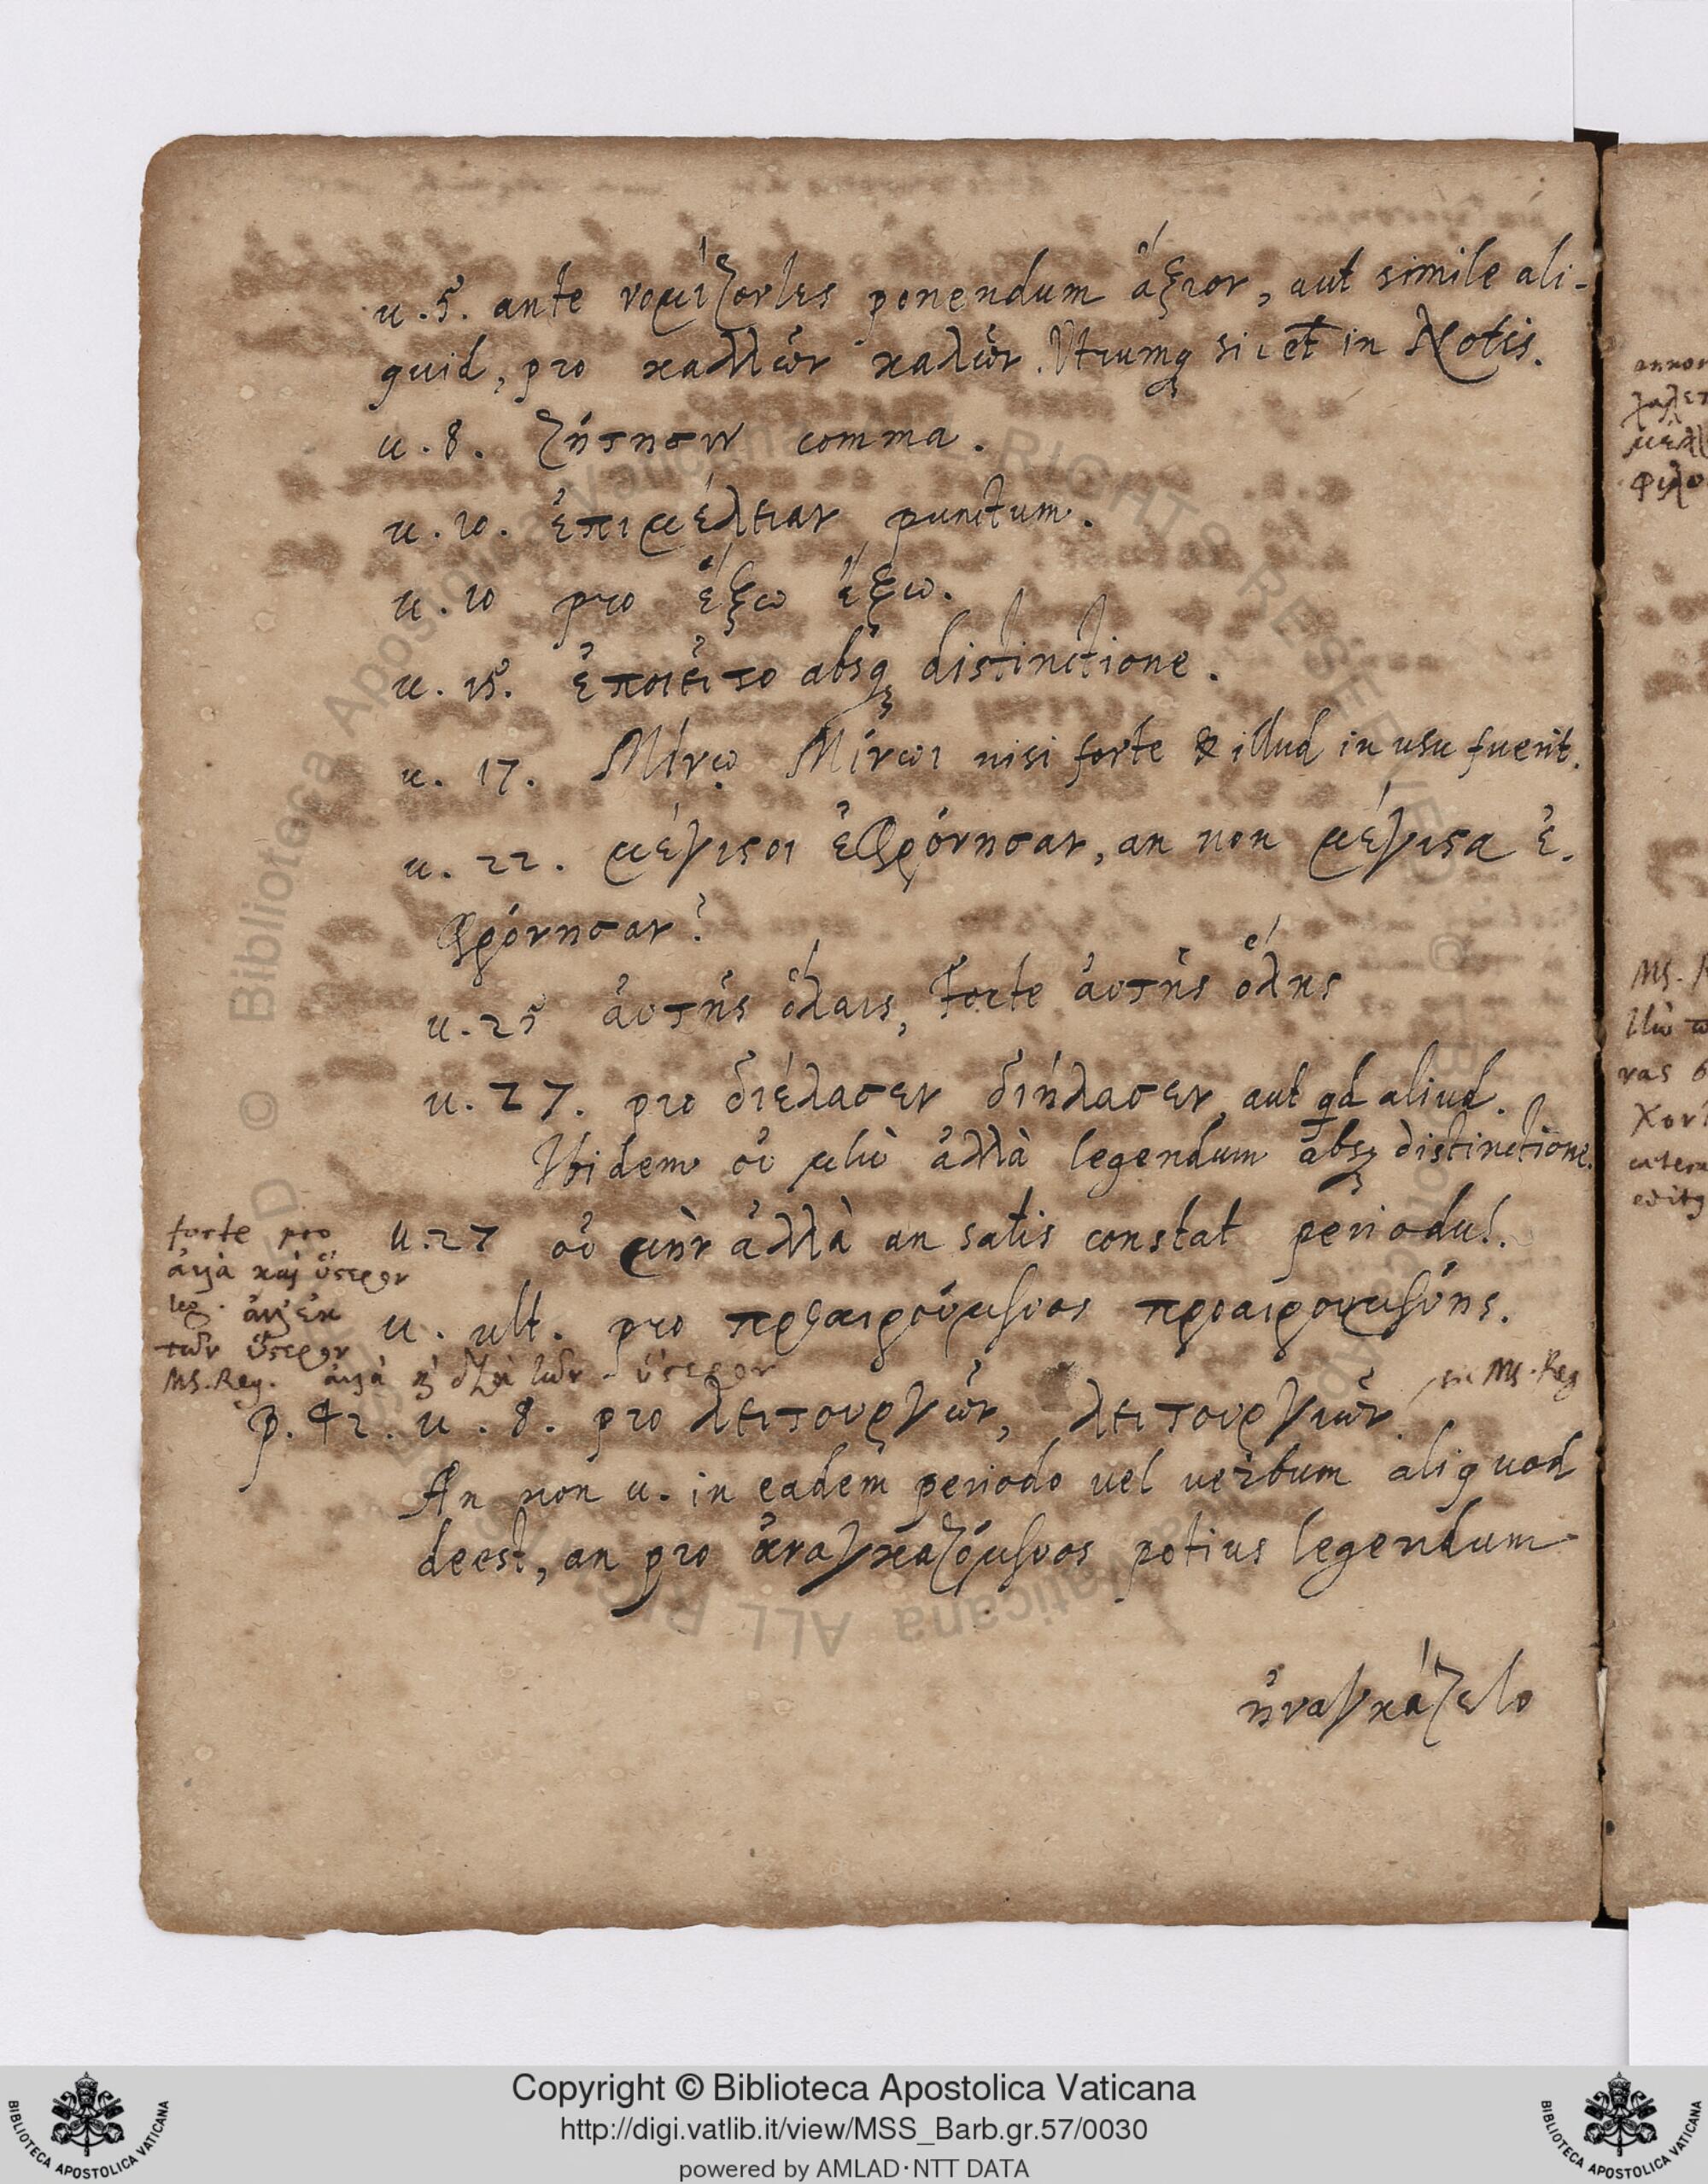 u. 5. ante νομίζοντες ponendum ἄξιον, aut simile ali-
quid, pro καλλῶν καλῶν. Utrumq sic et in Notis.
u. 8. ζήτησιν comma.
u. 10. ἐπιμέλειαν punctum.
u. 10 pro ἔξω ἕξω.
u. 15. ἐποιεῖτο absq distinctione.
u. 17. Μίνῳ Μίνωι nisi forte & illud in usu fuerit.
u. 22. μέγιστοι ἐφρόνησαν, an non μέγιστα ἐ-
φρόνησαν?
u. 25 αὐτῆς ὅλαις, forte αὐτῆς ὅλης
u. 27. pro διέλασεν διήλασεν, aut qd aliud.
Ibidem οὐ μὴν ἀλλὰ legendum absq distinctione.
u. 27 οὐ μὴν ἀλλὰ an satis constat periodus.
forte pro
ἀλλὰ καὶ ὕστερον
leg.
τῶν ὕστερον
MS. Reg. ὕστερον
u. ult. pro προαιρούμενος προαιρουμένης.
in MS. Reg
p. 42. u. 8. pro λειτουργῶν, λειτουργιῶν.
An non u. in eadem periodo uel uerbum aliquod
deest, an pro ἀναγκαζόμενος potius legendum
ἠναγκάζετο
Copyright © Biblioteca Apostolica Vaticana
http://digi.vatlib.it/view/MSS_Barb.gr.57/0030
powered by AMLAD·NTT DATA
BIBLIOTECA APOSTOLICA VATICANA
BIBLIOTECA APOSTOLICA VATICANA